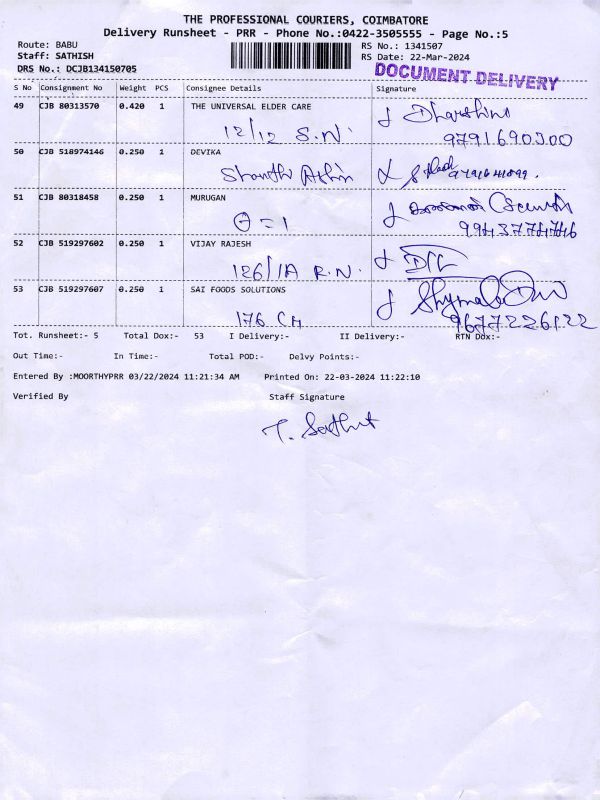 THE PROFESSIONAL COURIERS, COIMBATORE
Delivery Runsheet - PRR - Phone No.:0422-3505555 - Page No.:5
Route: BABU RS No.: 1341507
Staff: SATHISH RS Date: 22-Mar-2024
DRS No.: DCJB134150705 DOCUMENT DELIVERY
S No Consignment No Weight PCS Consignee Details Signature
49 CJB 80313570 0.420 1 THE UNIVERSAL ELDER CARE Dharshini
12/12 S.N. 9791690300
50 CJB 518974146 0.250 1 DEVIKA
51 CJB 80318458 0.250 1 MURUGAN
9943774746
52 CJB 519297602 0.250 1 VIJAY RAJESH
126/1A R.N.
53 CJB 519297607 0.250 1 SAI FOODS SOLUTIONS
176 CH 9677226122
Tot. Runsheet:- 5 Total Dox:- 53 I Delivery:- II Delivery:- RTN Dox:-
Out Time:- In Time:- Total POD:- Delvy Points:-
Entered By :MOORTHYPRR 03/22/2024 11:21:34 AM Printed On: 22-03-2024 11:22:10
Verified By Staff Signature